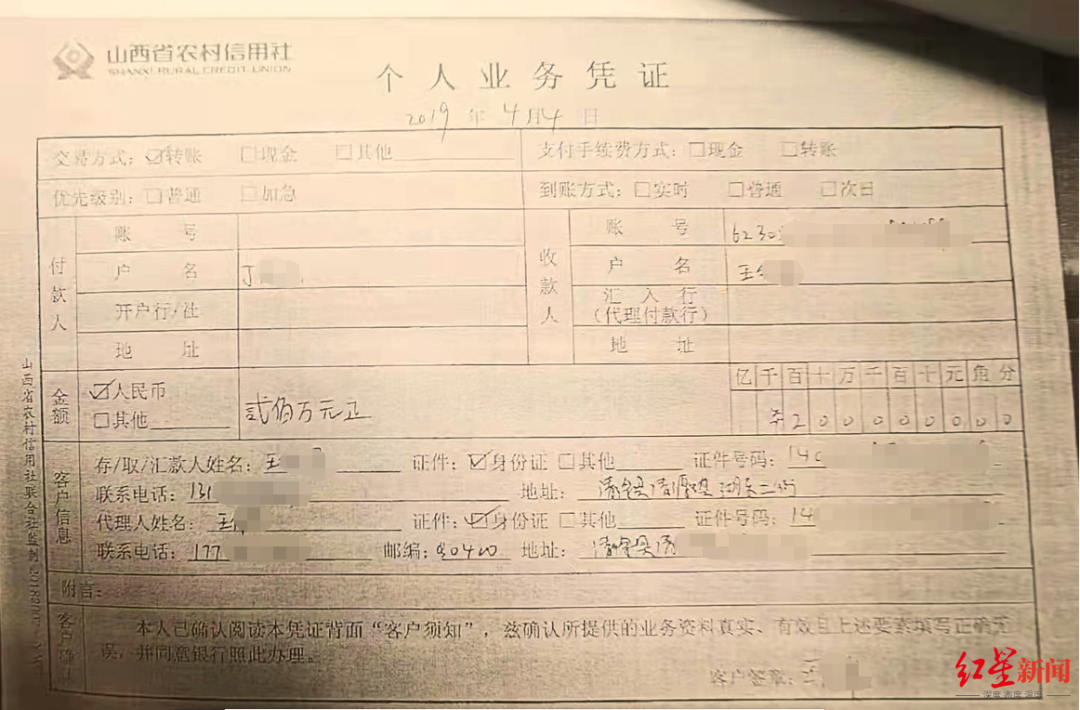 山西省农村信用社
SHANXI RURAL CREDIT UNION
个人业务凭证
2019年4月4日
交费方式：☑转账 □现金 □其他 支付手续费方式：□现金 □转账
优先级别：□普通 □加急 到账方式：□实时 □普通 □次日
付款人 账号 收款人 账号 6230
户名 丁 户名 王
开户行/社 汇入行（代理付款行）
地址 地址
金额 ☑人民币 □其他 贰佰万元正 亿千百十万千百十元角分
2 0 0 0 0 0 0 0 0
客户信息
存/取/汇款人姓名：王 证件：☑身份证 □其他 证件号码：140
联系电话：131 地址：清徐县清源镇
代理人姓名：王 证件：☑身份证 □其他 证件号码：14
联系电话：177 邮编：030400 地址：清徐县清
附言：
客户确认
本人已确认阅读本凭证背面“客户须知”，兹确认所提供的业务资料真实、有效且上述要素填写正确无
误，并同意银行照此办理。
客户签章：王
山西省农村信用社联合社监制
红星新闻
深度 态度 温度